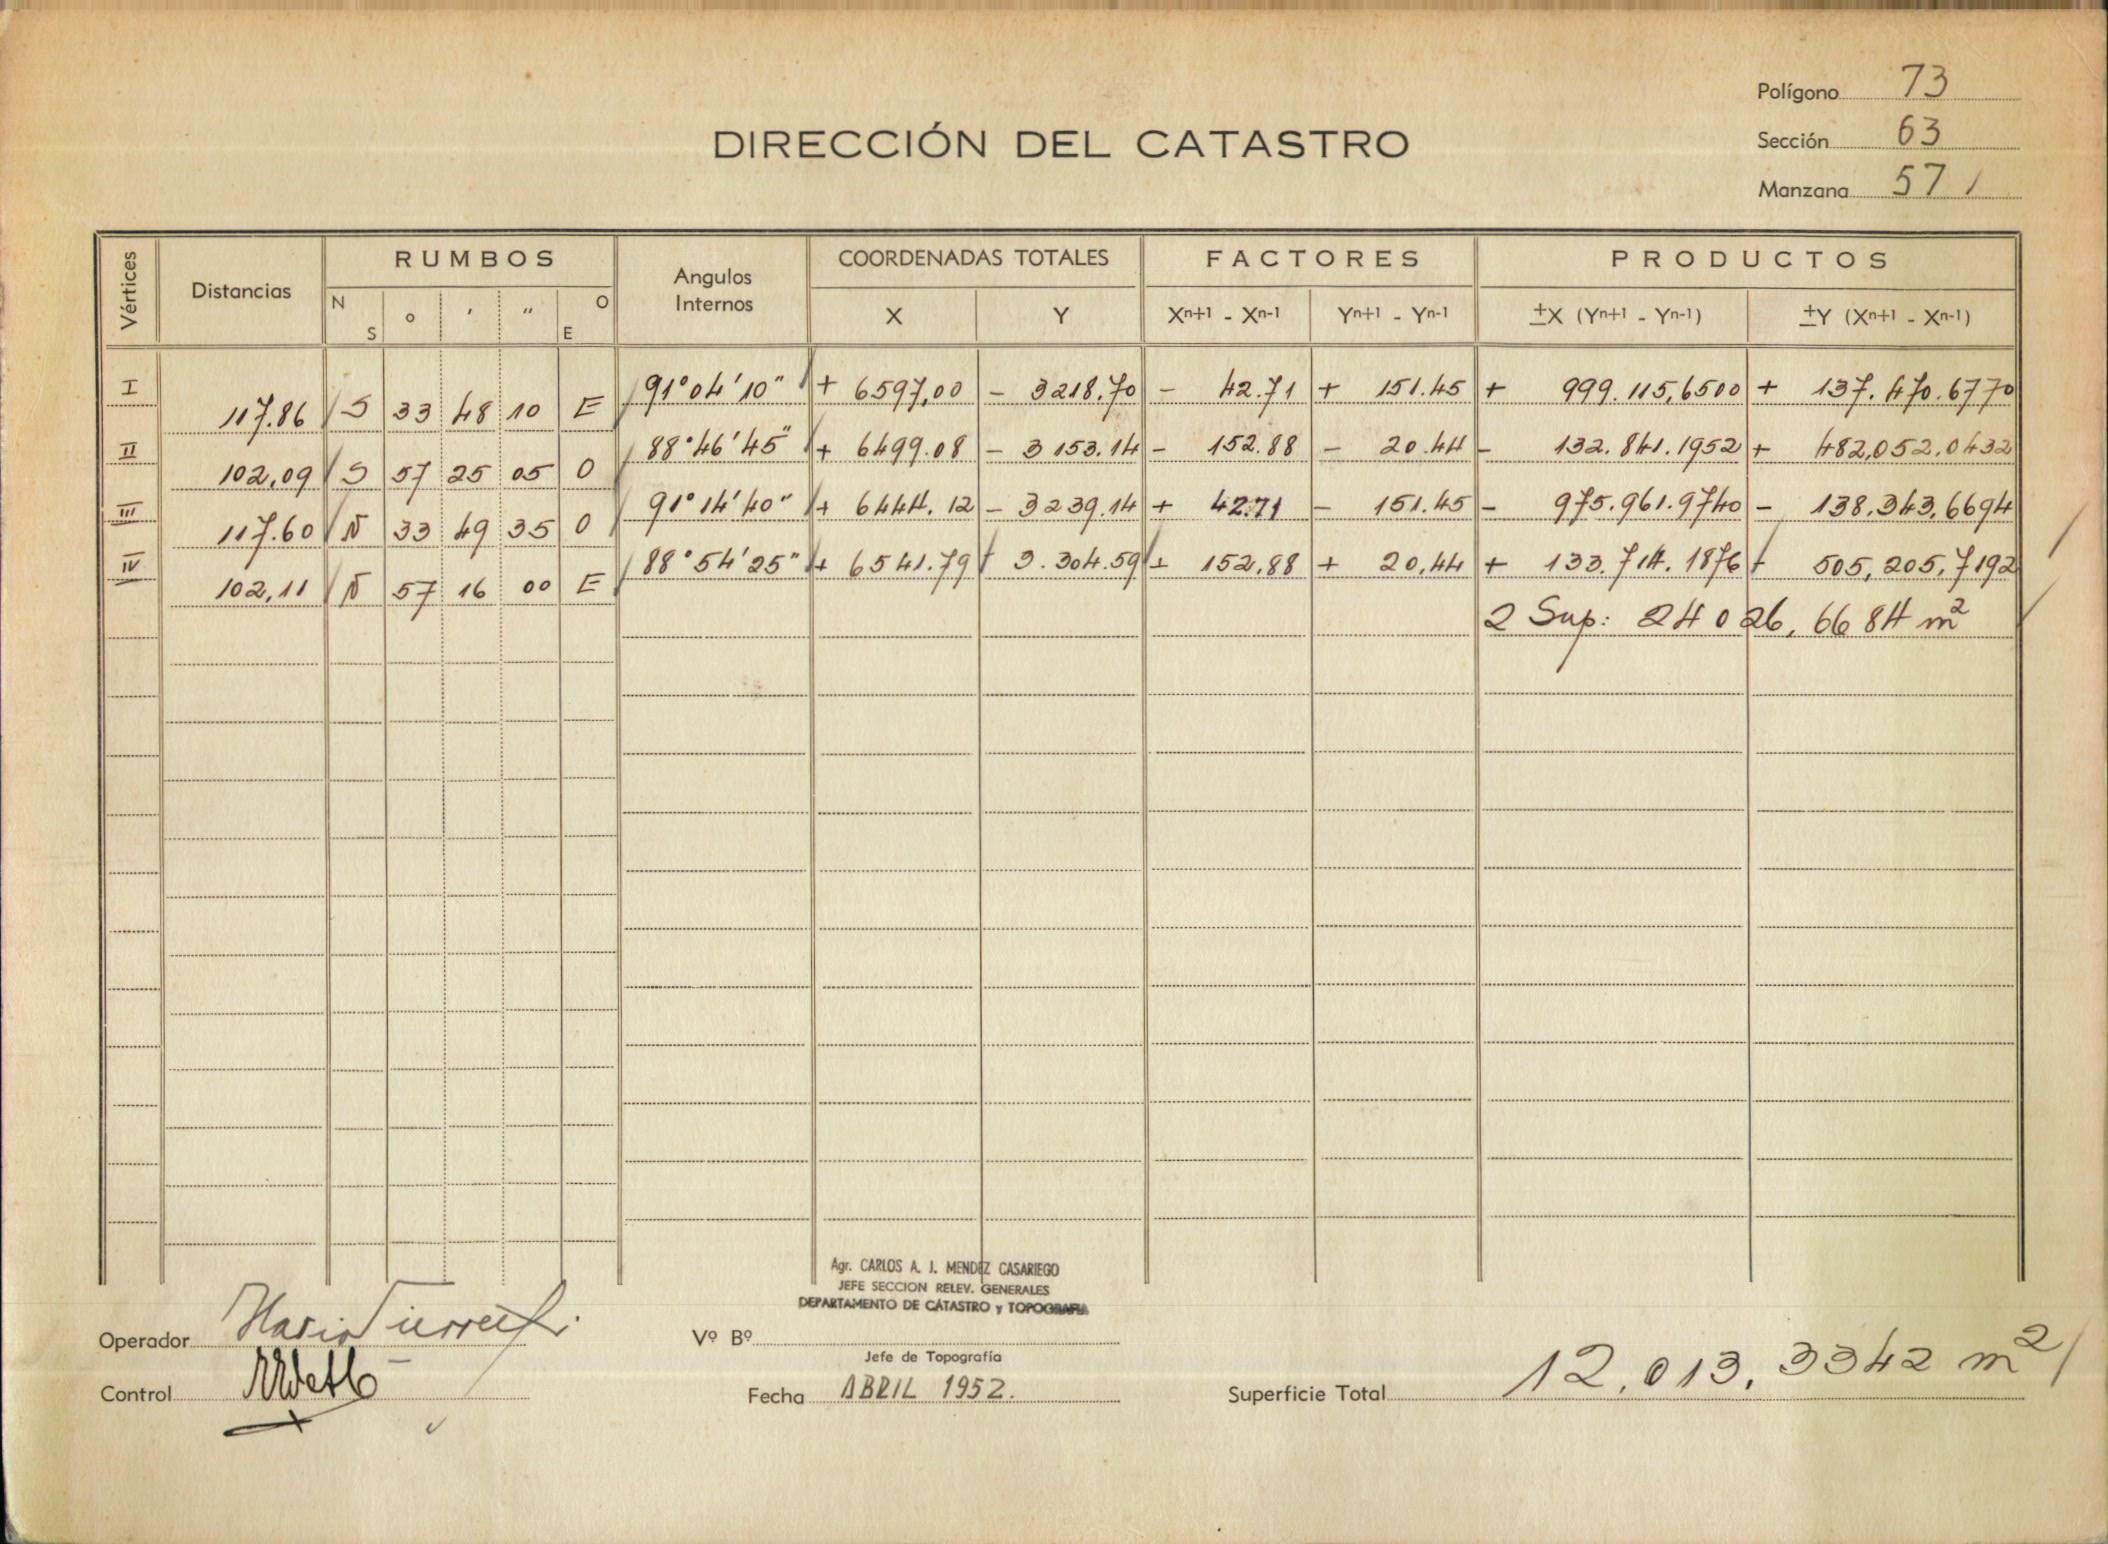 Polígono 73
DIRECCIÓN DEL CATASTRO
Sección 63
Manzana 57
Vértices Distancias RUMBOS Angulos Internos COORDENADAS TOTALES FACTORES PRODUCTOS
N S ° ' " O E X Y Xⁿ⁺¹ - Xⁿ⁻¹ Yⁿ⁺¹ - Yⁿ⁻¹ ±X (Yⁿ⁺¹ - Yⁿ⁻¹) ±Y (Xⁿ⁺¹ - Xⁿ⁻¹)
I 91°04'10" + 6597,00 - 3218.70 - 42.71 + 151.45 + 999.115,6500 + 137.470.6770
117.86 S 33 48 10 E
II 88°46'45" + 6499.08 - 3153.14 - 152.88 - 20.44 - 132.841.1952 + 482,052.0432
102,09 S 57 25 05 O
III 91°14'40" + 6444.12 - 3239.14 + 42.71 - 151.45 - 975.961.9740 - 138.343,6694
117.60 N 33 49 35 O
IV 88°54'25" + 6541.79 - 3.304.59 + 152,88 + 20,44 + 133.714.1876 - 505,205,7192
102,11 N 57 16 00 E
2 Sup: 24026,6684 m²
Agr. CARLOS A. J. MENDEZ CASARIEGO
JEFE SECCION RELEV. GENERALES
DEPARTAMENTO DE CATASTRO y TOPOGRAFIA
Operador
Vº Bº
Jefe de Topografía
Control
Fecha ABRIL 1952.
Superficie Total 12,013,3342 m²